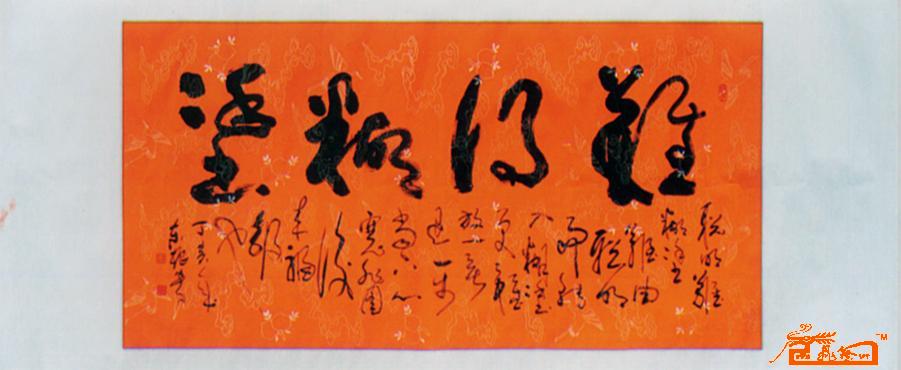 難得糊塗
聪明難
糊塗
難由
聪明
而转
入糊塗
更難
放一著
退一步
當下心
寬非圖
後
幸福
報
也
丁亥年